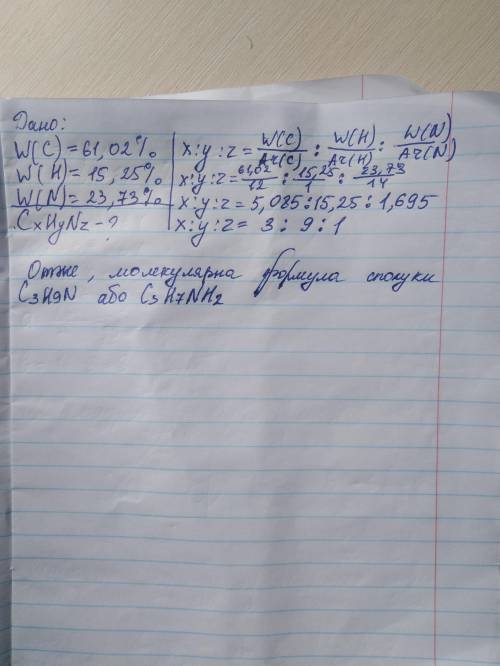 Дано:
W(C) = 61,02%
W(H) = 15,25%
W(N) = 23,73%
CxHyNz - ?
x:y:z = W(C)/Ar(C) : W(H)/Ar(H) : W(N)/Ar(N)
x:y:z = 61,02/12 : 15,25/1 : 23,73/14
x:y:z = 5,085 : 15,25 : 1,695
x:y:z = 3 : 9 : 1
Отже, молекулярна формула сполуки
C3H9N або C3H7NH2